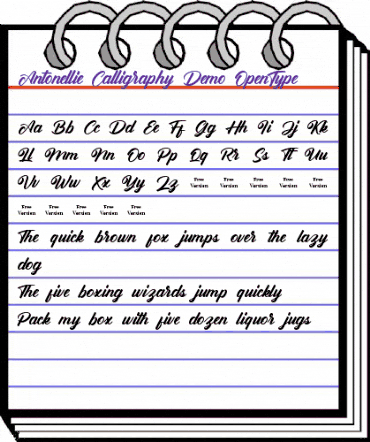 Antonellie Calligraphy Demo OpenType
Aa Bb Cc Dd Ee Ff Gg Hh Ii Jj Kk
Ll Mm Nn Oo Pp Qq Rr Ss Tt Uu
Vv Ww Xx Yy Zz Free Version Free Version Free Version Free Version Free Version
Free Version Free Version Free Version Free Version Free Version
The quick brown fox jumps over the lazy
dog
The five boxing wizards jump quickly
Pack my box with five dozen liquor jugs